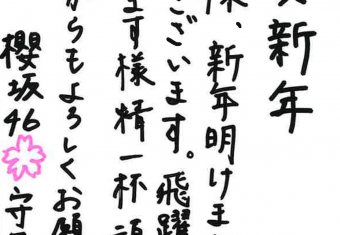 新年
、新年明けま
ございます。飛躍
ます様精一杯
からもよろしくお願
櫻坂46 守